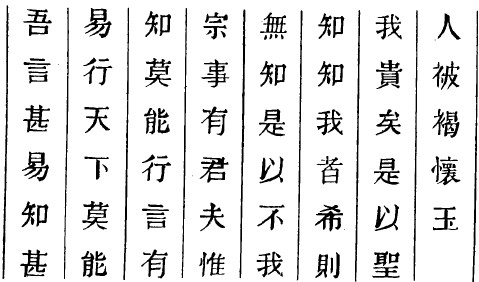 吾言甚易知甚
易行天下莫能
知莫能行言有
宗事有君夫惟
無知是以不我
知知我者希則
我貴矣是以聖
人被褐懷玉